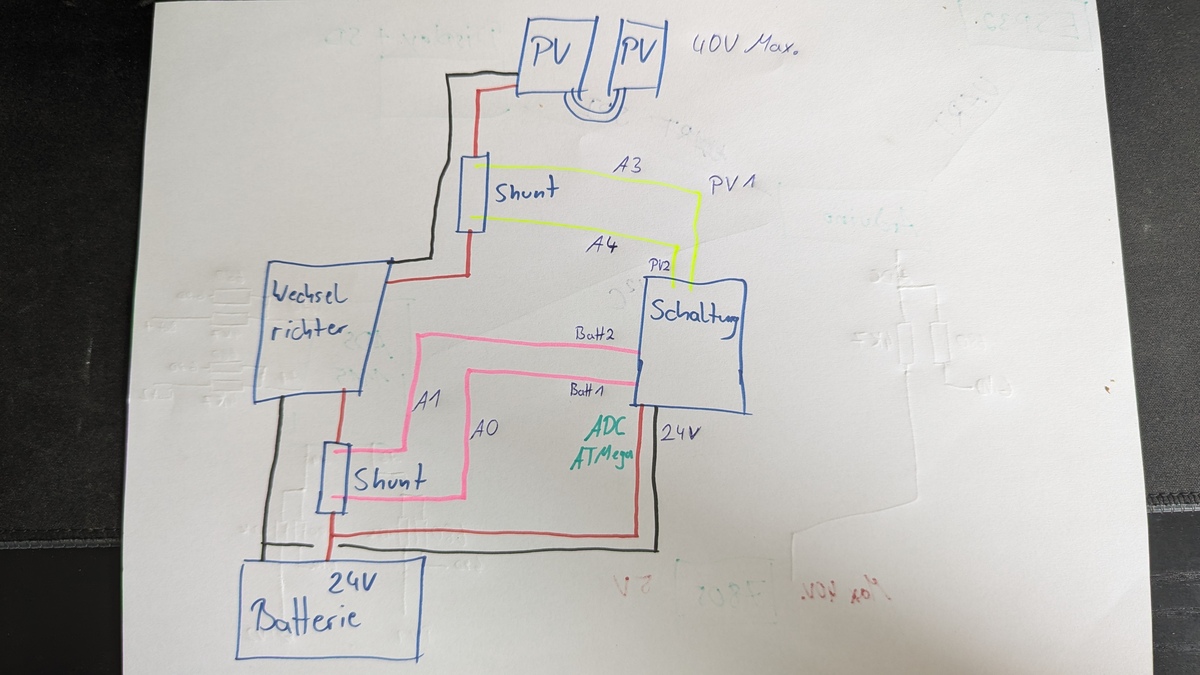 PV
PV
40V Max.
A3
Shunt
PV1
A4
PV2
Wechsel
richter
Schaltung
Batt2
Batt1
A1
A0
ADC
ATMega
24V
Shunt
24V
Batterie